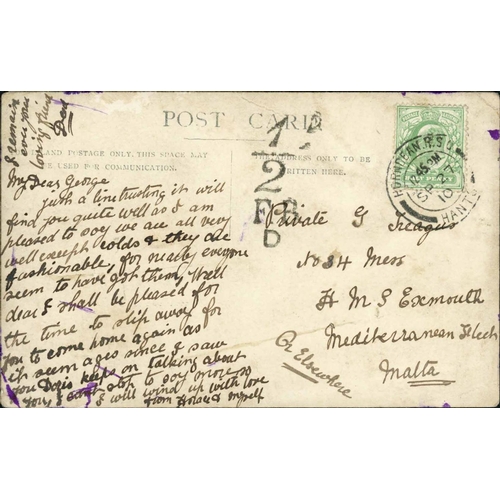 I remain
ever your
loving friend
POST CARD
LAND POSTAGE ONLY, THIS SPACE MAY
BE USED FOR COMMUNICATION.
THE ADDRESS ONLY TO BE
WRITTEN HERE.
1
2
F.B.
D
HORNDEAN. R.S.O.
SP
10
HANTS
My Dear George
just a line trusting it will
find you quite well as I am
pleased to say we are all very
well except colds & they are
fashionable, for nearly everyone
seem to have got them, Well
dear I shall be pleased for
the time to slip away for
you to come home again as
it seems ages since I saw
you Doris keeps on talking about
you, I cant stop to say more so
I will wind up with love
from & myself
Private G Treagus
No 34 Mess
H M S Exmouth
Mediterranean Fleet
Malta
Or Elsewhere